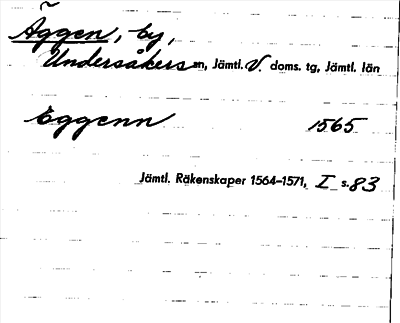 Äggen, by,
Undersåkers sn, Jämtl. V. doms. tg, Jämtl. län
Eggenn 1565
Jämtl. Räkenskaper 1564–1571, I s. 83